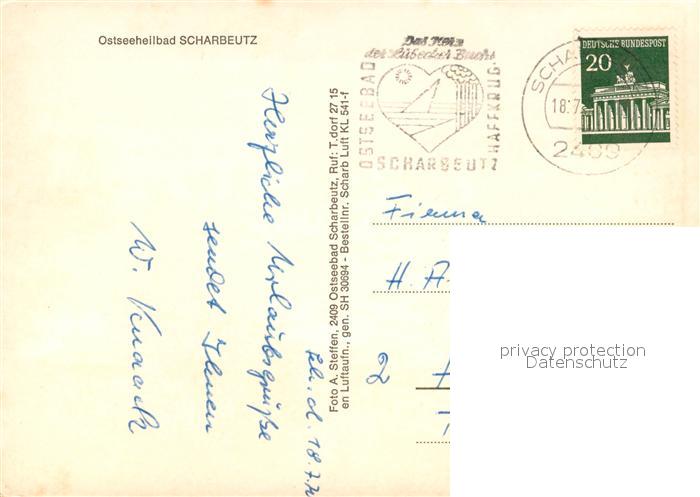 Ostseeheilbad SCHARBEUTZ
Das Herz
der Lübecker Bucht
OSTSEEBAD
HAFFKRUG
SCHARBEUTZ
2409
18.7
DEUTSCHE BUNDESPOST
20
Foto A. Steffen, 2409 Ostseebad Scharbeutz, Ruf: T.dorf 27 15
en Luftaufn., gen. SH 30694 - Bestellnr. Scharb Luft KL 541-f
Sch. d. 18.7.7
Herzliche Urlaubsgrüße
sendet Ihnen
W. Knaack
Firma
H. A
2
privacy protection
Datenschutz